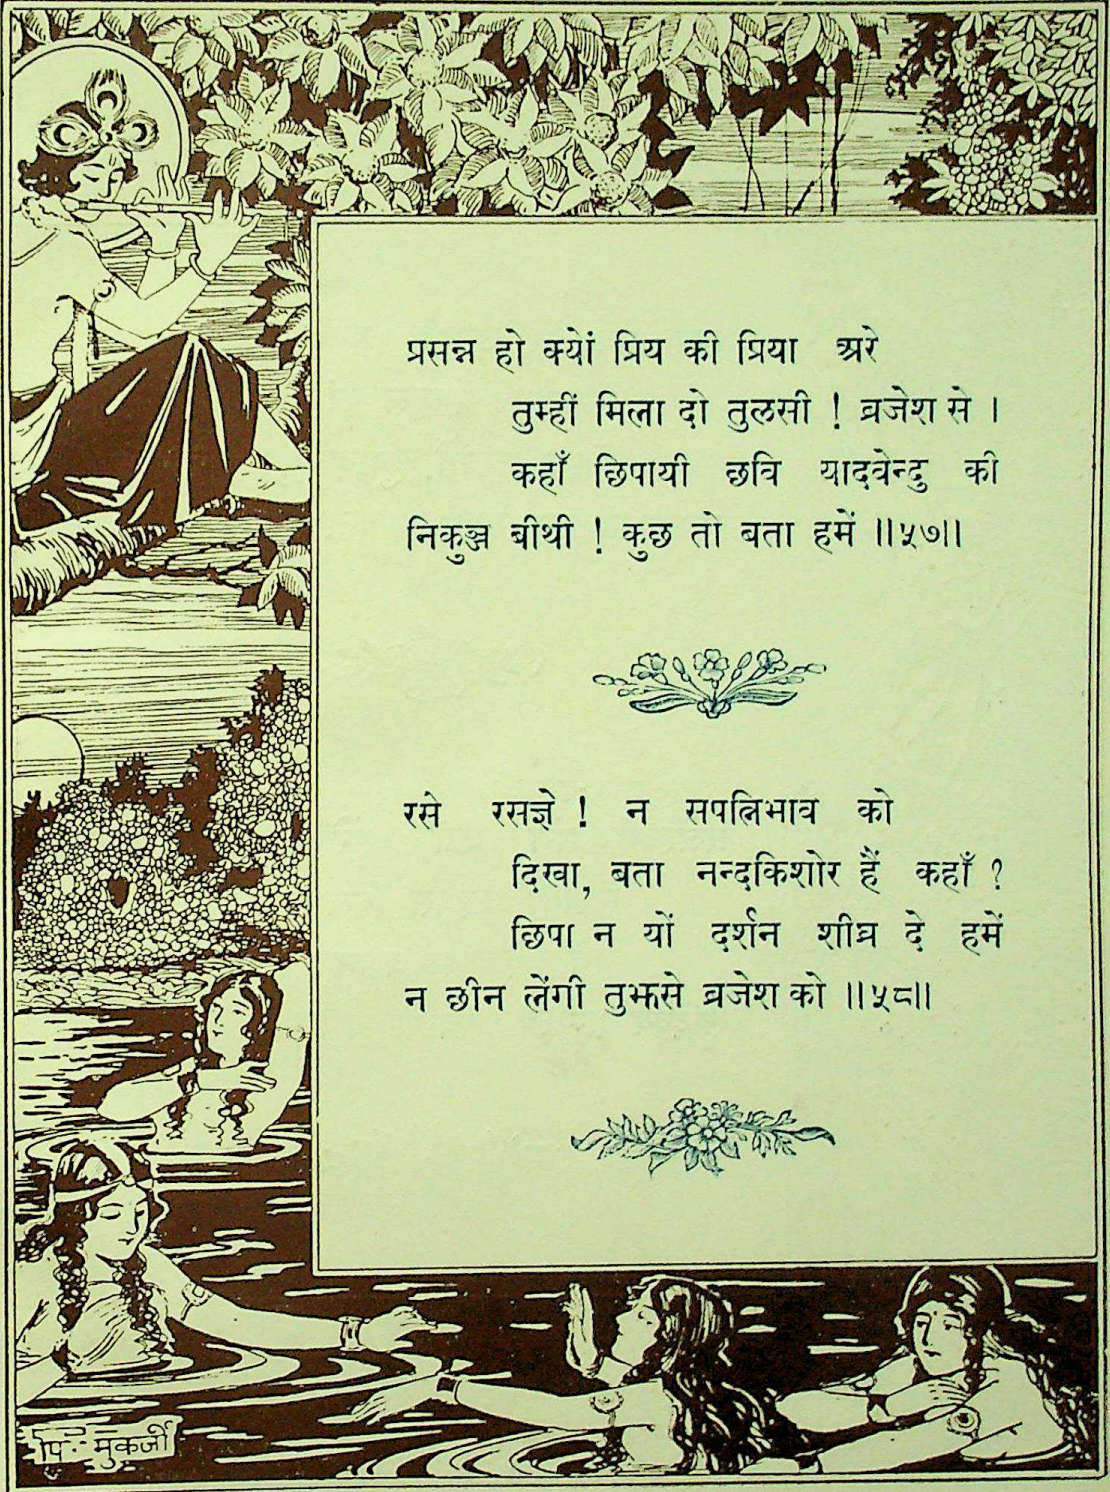 प्रसन्न हो क्यों प्रिय की प्रिया अरे
तुम्हीं मिला दो तुलसी ! व्रजेश से ।
कहाँ छिपायी छवि यादवेन्दु की
निकुञ्ज बीथी ! कुछ तो बता हमें ॥५७॥
रसे रसज्ञे ! न सपत्निभाव को
दिखा, बता नन्दकिशोर हैं कहाँ ?
छिपा न यों दर्शन शीघ्र दे हमें
न छीन लेंगी तुझसे व्रजेश को ॥५८॥
पि॰ मुकर्जी